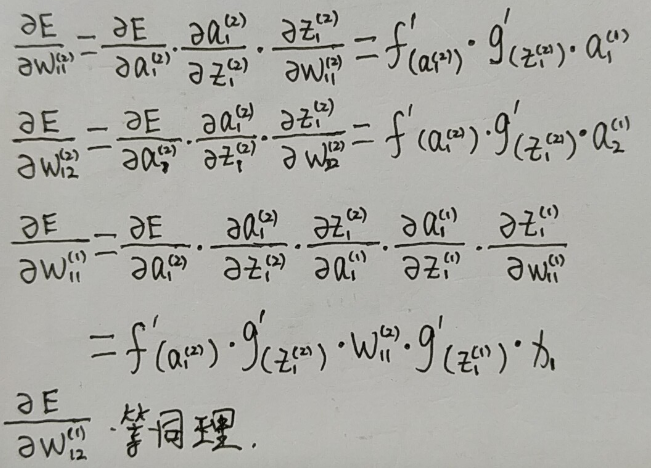 ∂E/∂w₁₁⁽²⁾ = ∂E/∂a₁⁽²⁾ · ∂a₁⁽²⁾/∂z₁⁽²⁾ · ∂z₁⁽²⁾/∂w₁₁⁽²⁾ = f′(a₁⁽²⁾) · g′(z₁⁽²⁾) · a₁⁽¹⁾
∂E/∂w₁₂⁽²⁾ = ∂E/∂a₁⁽²⁾ · ∂a₁⁽²⁾/∂z₁⁽²⁾ · ∂z₁⁽²⁾/∂w₁₂⁽²⁾ = f′(a₁⁽²⁾) · g′(z₁⁽²⁾) · a₂⁽¹⁾
∂E/∂w₁₁⁽¹⁾ = ∂E/∂a₁⁽²⁾ · ∂a₁⁽²⁾/∂z₁⁽²⁾ · ∂z₁⁽²⁾/∂a₁⁽¹⁾ · ∂a₁⁽¹⁾/∂z₁⁽¹⁾ · ∂z₁⁽¹⁾/∂w₁₁⁽¹⁾
= f′(a₁⁽²⁾) · g′(z₁⁽²⁾) · w₁₁⁽²⁾ · g′(z₁⁽¹⁾) · x₁
∂E/∂w₁₂⁽¹⁾ 等同理.